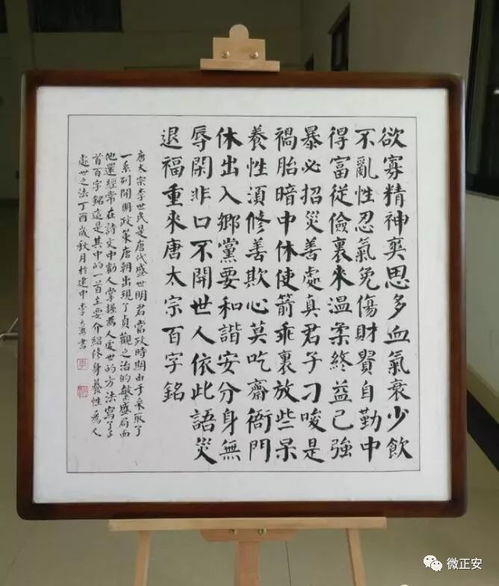 欲寡精神爽思多血氣衰少飲
不亂性忍氣免傷財貴自勤中
得富從儉裏來温柔終益己強
暴必招災善處真君子刁唆是
禍胎暗中休使箭乖裏放些呆
養性須修善欺心莫吃齋衙門
休出入鄉黨要和諧安分身無
辱閑非口不開世人依此語災
退福重來唐太宗百字銘
唐太宗李世民是唐代盛世明君當政時期由于采取了
一系列開明政策唐朝出現了貞觀之治的繁盛局面
他還經常在詩文中勸人掌握為人處世的方法寫了多
首百字銘這是其中的一首主要介紹修身養性為人
處世之法丁酉歲秋月於建中李書
微正安